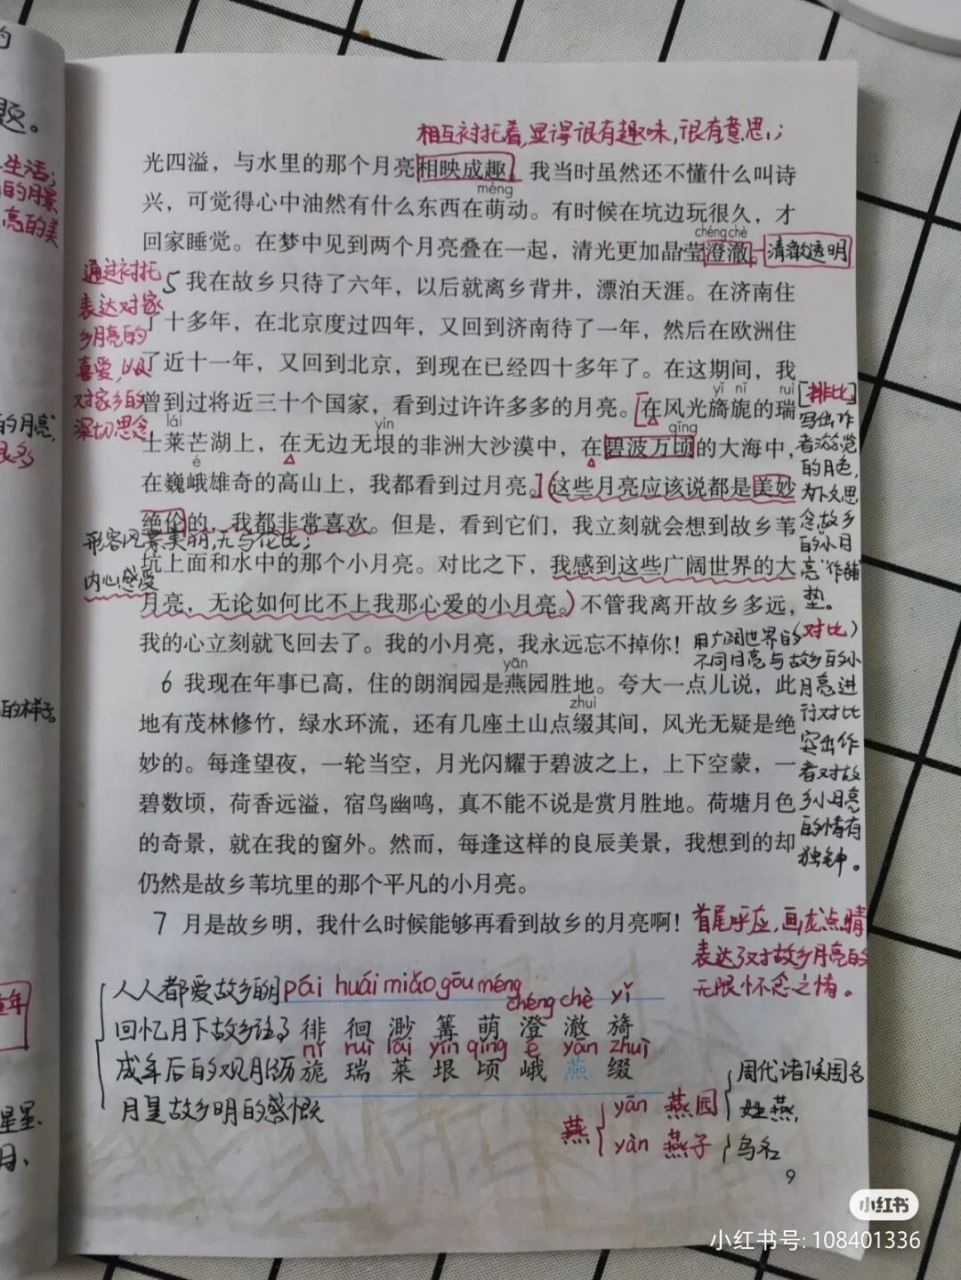 相互衬托着,显得很有趣味,很有意思;
光四溢，与水里的那个月亮相映成趣。我当时虽然还不懂什么叫诗
méng
兴，可觉得心中油然有什么东西在萌动。有时候在坑边玩很久，才
chéng chè
回家睡觉。在梦中见到两个月亮叠在一起，清光更加晶莹澄澈。
清澈透明
通过衬托
表达对家
乡月亮的
喜爱,以及
对家乡的
深切思念
5 我在故乡只待了六年，以后就离乡背井，漂泊天涯。在济南住
了十多年，在北京度过四年，又回到济南待了一年，然后在欧洲住
了近十一年，又回到北京，到现在已经四十多年了。在这期间，我
yǐ nǐ ruì
曾到过将近三十个国家，看到过许许多多的月亮。在风光旖旎的瑞
lái yín qǐng
士莱芒湖上，在无边无垠的非洲大沙漠中，在碧波万顷的大海中，
é
在巍峨雄奇的高山上，我都看到过月亮。这些月亮应该说都是美妙
绝伦的，我都非常喜欢。但是，看到它们，我立刻就会想到故乡苇
形容风景美丽,无与伦比;
坑上面和水中的那个小月亮。对比之下，我感到这些广阔世界的大
内心感受
月亮，无论如何比不上我那心爱的小月亮。不管我离开故乡多远，
我的心立刻就飞回去了。我的小月亮，我永远忘不掉你！
[排比]
写出作
者游览
的月色,
为下文思
念故乡
的小月
亮作铺
垫。
(对比)
用广阔世界的
不同月亮与故乡的小
月亮进
行对比
突出作
者对故
乡小月亮
的情有
独钟。
yān
6 我现在年事已高，住的朗润园是燕园胜地。夸大一点儿说，此
zhuì
地有茂林修竹，绿水环流，还有几座土山点缀其间，风光无疑是绝
妙的。每逢望夜，一轮当空，月光闪耀于碧波之上，上下空蒙，一
碧数顷，荷香远溢，宿鸟幽鸣，真不能不说是赏月胜地。荷塘月色
的奇景，就在我的窗外。然而，每逢这样的良辰美景，我想到的却
仍然是故乡苇坑里的那个平凡的小月亮。
7 月是故乡明，我什么时候能够再看到故乡的月亮啊！
首尾呼应,画龙点睛
表达了对故乡月亮的
无限怀念之情。
人人都爱故乡的月
回忆月下故乡往事
成年后的观月经历
月是故乡明的感慨
pái huái miǎo gōu méng chéng chè yǐ
徘 徊 渺 篝 萌 澄 澈 旖
nǐ ruì lái yín qǐng é yān zhuì
旎 瑞 莱 垠 顷 峨 燕 缀
燕
yān 燕园
周代诸侯国名
姓燕,
yàn 燕子
鸟名
9
小红书
小红书号: 108401336